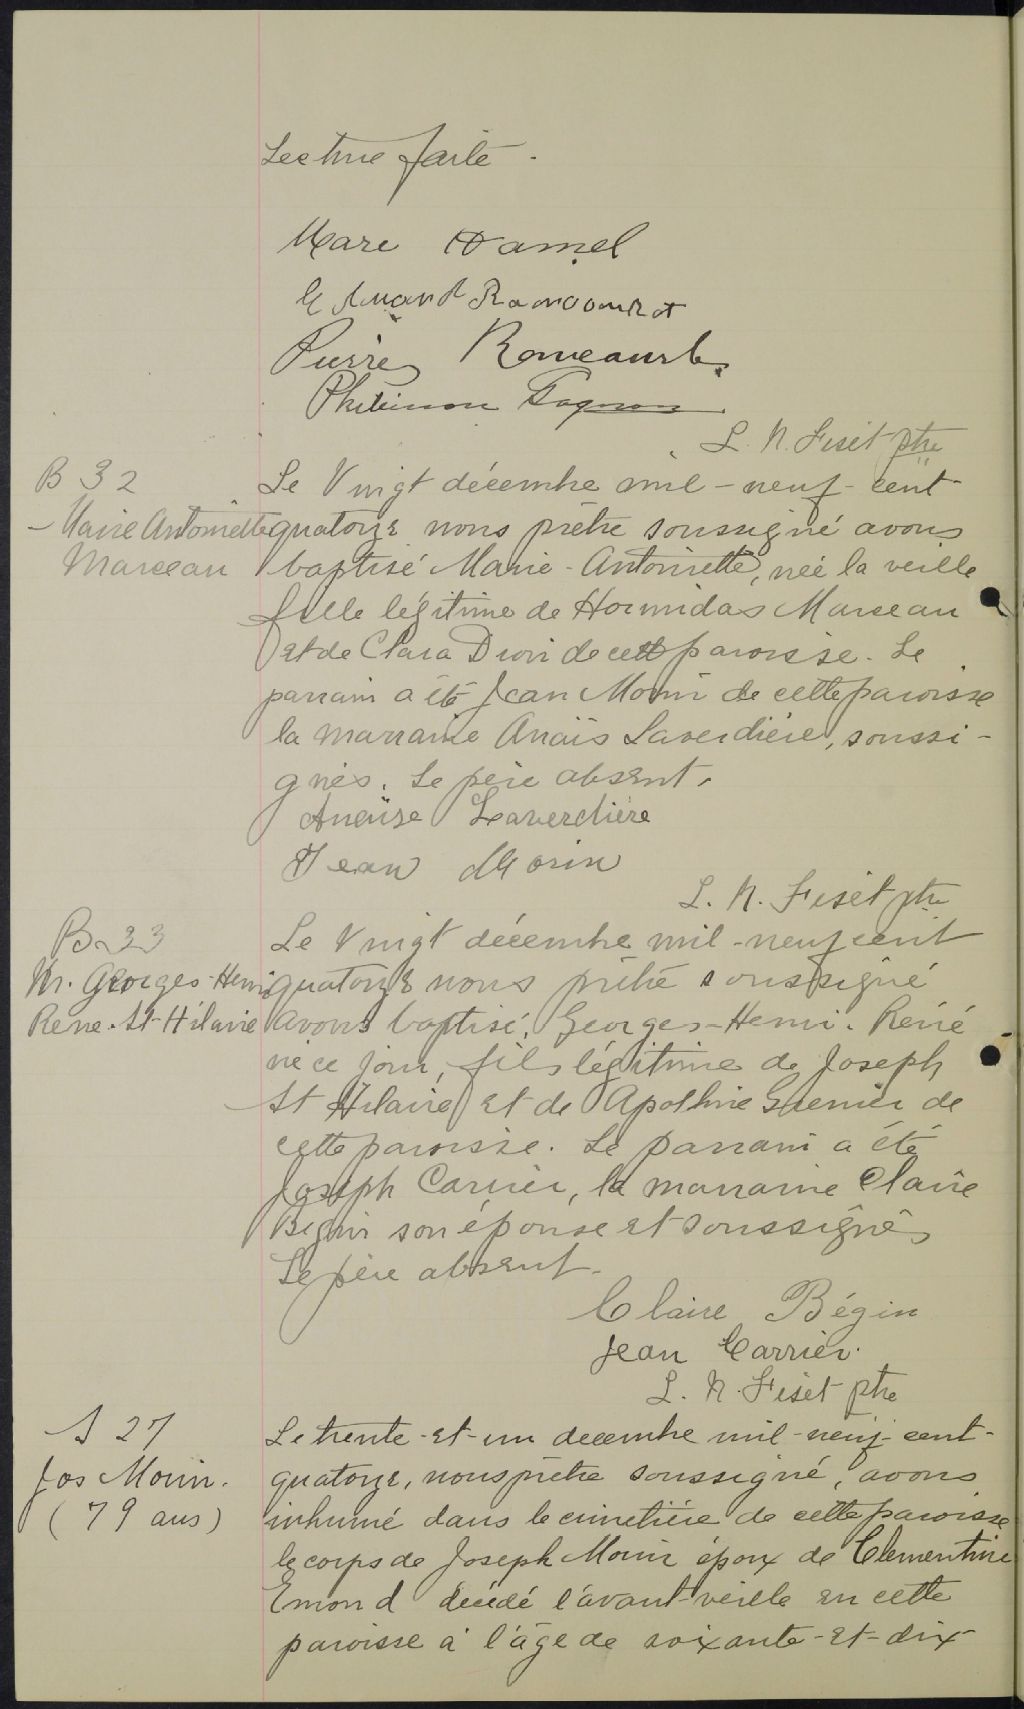 Lecture faite.
Marc Hamel
Edmond Rancourt
Pierre
Philémon Gagnon
L. N. Fiset ptre
B 32
Marie Antoinette
Marceau
Le Vingt décembre mil-neuf-cent-
quatorze nous prêtre soussigné avons
baptisé Marie-Antoinette, née la veille
fille légitime de Hormidas Marceau
et de Clara Dion de cette paroisse. Le
parrain a été Jean Morin de cette paroisse
la marraine Anaïs Laverdière, soussi-
gnés. Le père absent.
Anaïse Laverdière
Jean Morin
L. N. Fiset ptre
B. 33
M. Georges-Henri
Rene. St-Hilaire
Le Vingt décembre mil-neuf cent
quatorze nous prêtre soussigné
avons baptisé, Georges-Henri. Réné
né ce jour, fils légitime de Joseph
St Hilaire et de Apolline Grenier de
cette paroisse. Le parrain a été
Joseph Carrier, la marraine Claire
Begin son épouse et soussignés
Le père absent.
Claire Bégin
Jean Carrier.
L. N. Fiset ptre
S 27
Jos Morin.
(79 ans)
Le trente-et-un decembre mil-neuf-cent-
quatorze, nous prêtre soussigné, avons
inhumé dans le cimetière de cette paroisse
le corps de Joseph Morin époux de Clementine
Emond décédé l'avant-veille en cette
paroisse à l'âge de soixante-et-dix